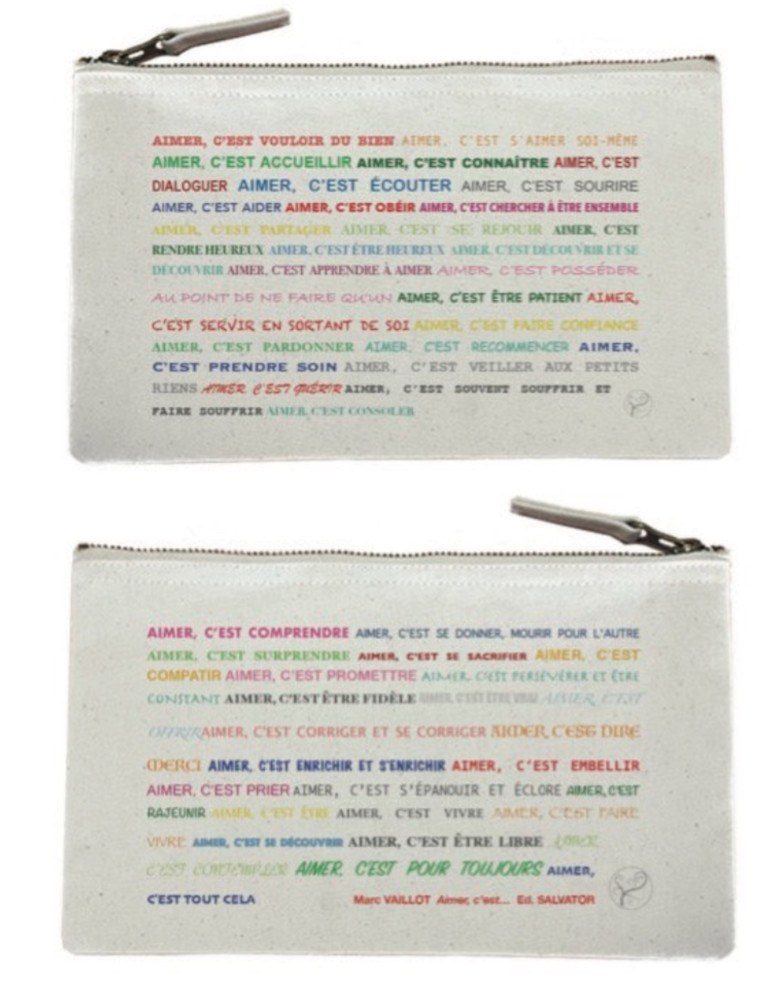 AIMER, C'EST VOULOIR DU BIEN AIMER, C'EST S'AIMER SOI-MÊME
AIMER, C'EST ACCUEILLIR AIMER, C'EST CONNAÎTRE AIMER, C'EST
DIALOGUER AIMER, C'EST ÉCOUTER AIMER, C'EST SOURIRE
AIMER, C'EST AIDER AIMER, C'EST OBÉIR AIMER, C'EST CHERCHER À ÊTRE ENSEMBLE
AIMER, C'EST PARTAGER AIMER, C'EST SE RÉJOUIR AIMER, C'EST
RENDRE HEUREUX AIMER, C'EST ÊTRE HEUREUX AIMER, C'EST DÉCOUVRIR ET SE
DÉCOUVRIR AIMER, C'EST APPRENDRE À AIMER AIMER, C'EST POSSÉDER
AU POINT DE NE FAIRE QU'UN AIMER, C'EST ÊTRE PATIENT AIMER,
C'EST SERVIR EN SORTANT DE SOI AIMER, C'EST FAIRE CONFIANCE
AIMER, C'EST PARDONNER AIMER, C'EST RECOMMENCER AIMER,
C'EST PRENDRE SOIN AIMER, C'EST VEILLER AUX PETITS
RIENS AIMER, C'EST GUÉRIR AIMER, C'EST SOUVENT SOUFFRIR ET
FAIRE SOUFFRIR AIMER, C'EST CONSOLER
AIMER, C'EST COMPRENDRE AIMER, C'EST SE DONNER, MOURIR POUR L'AUTRE
AIMER, C'EST SURPRENDRE AIMER, C'EST SE SACRIFIER AIMER, C'EST
COMPATIR AIMER, C'EST PROMETTRE AIMER, C'EST PERSÉVÉRER ET ÊTRE
CONSTANT AIMER, C'EST ÊTRE FIDÈLE AIMER, C'EST ÊTRE VRAI AIMER, C'EST
OFFRIR AIMER, C'EST CORRIGER ET SE CORRIGER AIMER, C'EST DIRE
MERCI AIMER, C'EST ENRICHIR ET S'ENRICHIR AIMER, C'EST EMBELLIR
AIMER, C'EST PRIER AIMER, C'EST S'ÉPANOUIR ET ÉCLORE AIMER, C'EST
RAJEUNIR AIMER, C'EST ÊTRE AIMER, C'EST VIVRE AIMER, C'EST FAIRE
VIVRE AIMER, C'EST SE DÉCOUVRIR AIMER, C'EST ÊTRE LIBRE AIMER,
C'EST CONTEMPLER AIMER, C'EST POUR TOUJOURS AIMER,
C'EST TOUT CELA Marc VAILLOT Aimer, c'est... Ed. SALVATOR